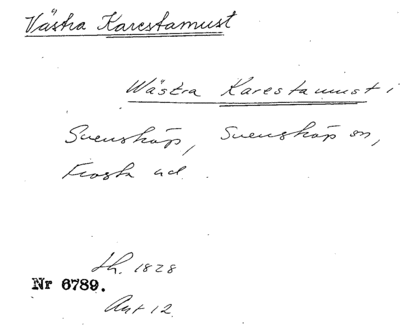 Västra Karestamust
Wästra Karestamust i
Svensköp, Svensköp sn,
Frosta hd.
Lh. 1828
Nr 6789.
Avt 12.